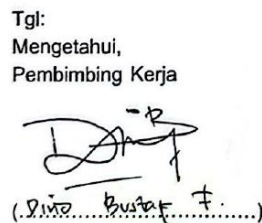 Tgl:
Mengetahui,
Pembimbing Kerja
(Dino Bustak F.)